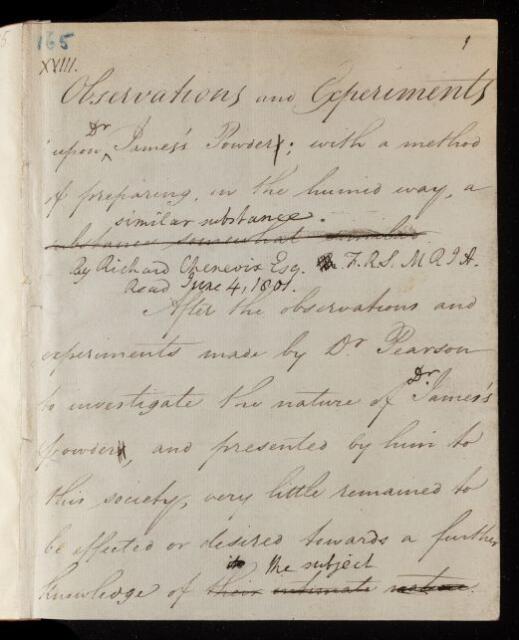 165
1
XVIII.
Observations and Experiments
upon Dr James's Powder; with a method
of preparing, in the humid way, a
similar substance.
substance somewhat similar
By Richard Chenevix Esq. F.R.S. M.R.I.A.
Read June 4, 1801.
After the observations and
experiments made by Dr Pearson
to investigate the nature of Dr James's
powder, and presented by him to
this society, very little remained to
be effected or desired towards a further
the subject
knowledge of their intimate nature.